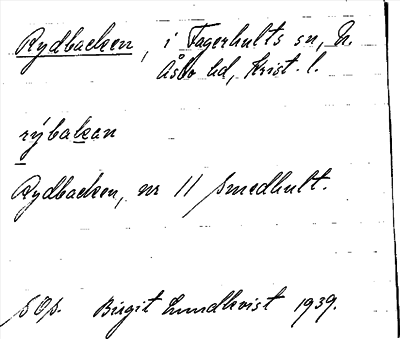 Rydbacken, i Fagerhults sn, N.
Åsbo hd, Krist. l.
rýbakan
Rydbacken, nr 11 Smedhult.
Birgit Lundkvist 1939.